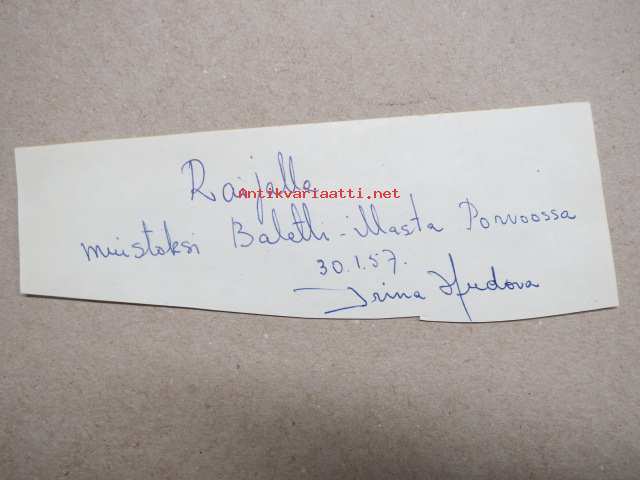 Raijalle
Antikvariaatti.net
muistoksi Baletti-illasta Porvoossa
30.1.57.
Irina Hudova